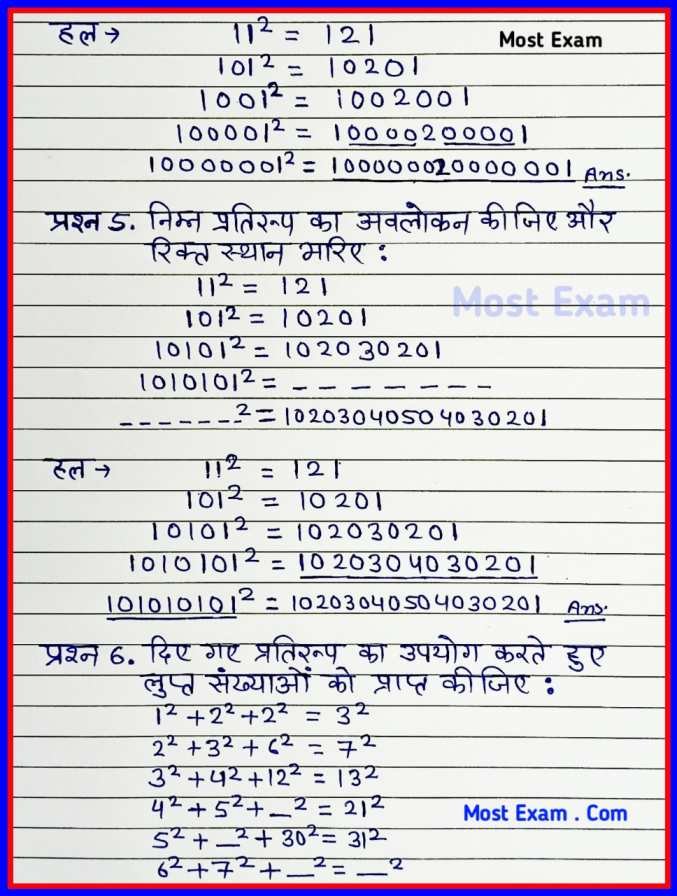 हल → 11² = 121 Most Exam
101² = 10201
1001² = 1002001
100001² = 10000200001
10000001² = 100000020000001 Ans.
प्रश्न 5. निम्न प्रतिरूप का अवलोकन कीजिए और
रिक्त स्थान भरिए :
11² = 121
Most Exam
101² = 10201
10101² = 102030201
1010101² = _ _ _ _ _ _ _
_ _ _ _ _ _ _² = 10203040504030201
हल → 11² = 121
101² = 10201
10101² = 102030201
1010101² = 1020304030201
101010101² = 10203040504030201 Ans.
प्रश्न 6. दिए गए प्रतिरूप का उपयोग करते हुए
लुप्त संख्याओं को प्राप्त कीजिए :
1² + 2² + 2² = 3²
2² + 3² + 6² = 7²
3² + 4² + 12² = 13²
4² + 5² + _² = 21² Most Exam . Com
5² + _² + 30² = 31²
6² + 7² + _² = _²